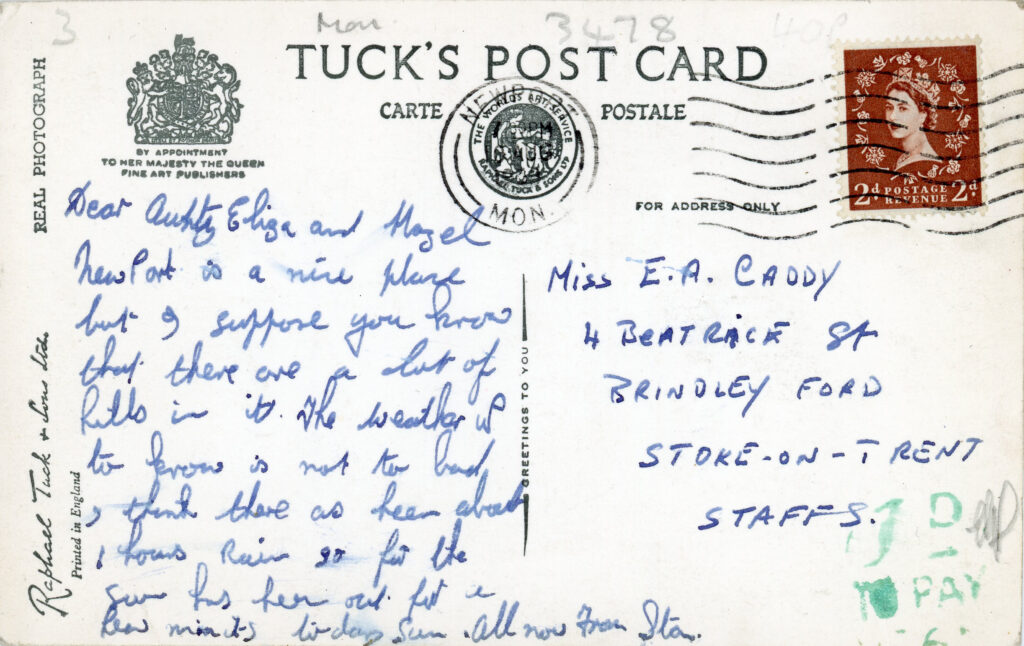 3 Mon 3478 40P
TUCK'S POST CARD
CARTE POSTALE
BY APPOINTMENT
TO HER MAJESTY THE QUEEN
FINE ART PUBLISHERS
REAL PHOTOGRAPH
Raphael Tuck & Sons Ltd.
Printed in England
NEWPORT
MON.
THE WORLD'S ART SERVICE
RAPHAEL TUCK & SONS LTD
2d POSTAGE 2d
REVENUE
FOR ADDRESS ONLY
GREETINGS TO YOU
Dear Aunty Eliza and Hazel
NewPort is a nice place
but I suppose you know
that there are a lot of
hills in it. The weather up
to know is not to bad,
I think there as been about
1 hours Rain so far the
sun has been out for a
few minits to-days Sun. All now From Stan.
Miss E.A. CADDY
4 BEATRICE St
BRINDLEY FORD
STOKE-ON-TRENT
STAFFS.
D
PAY
6